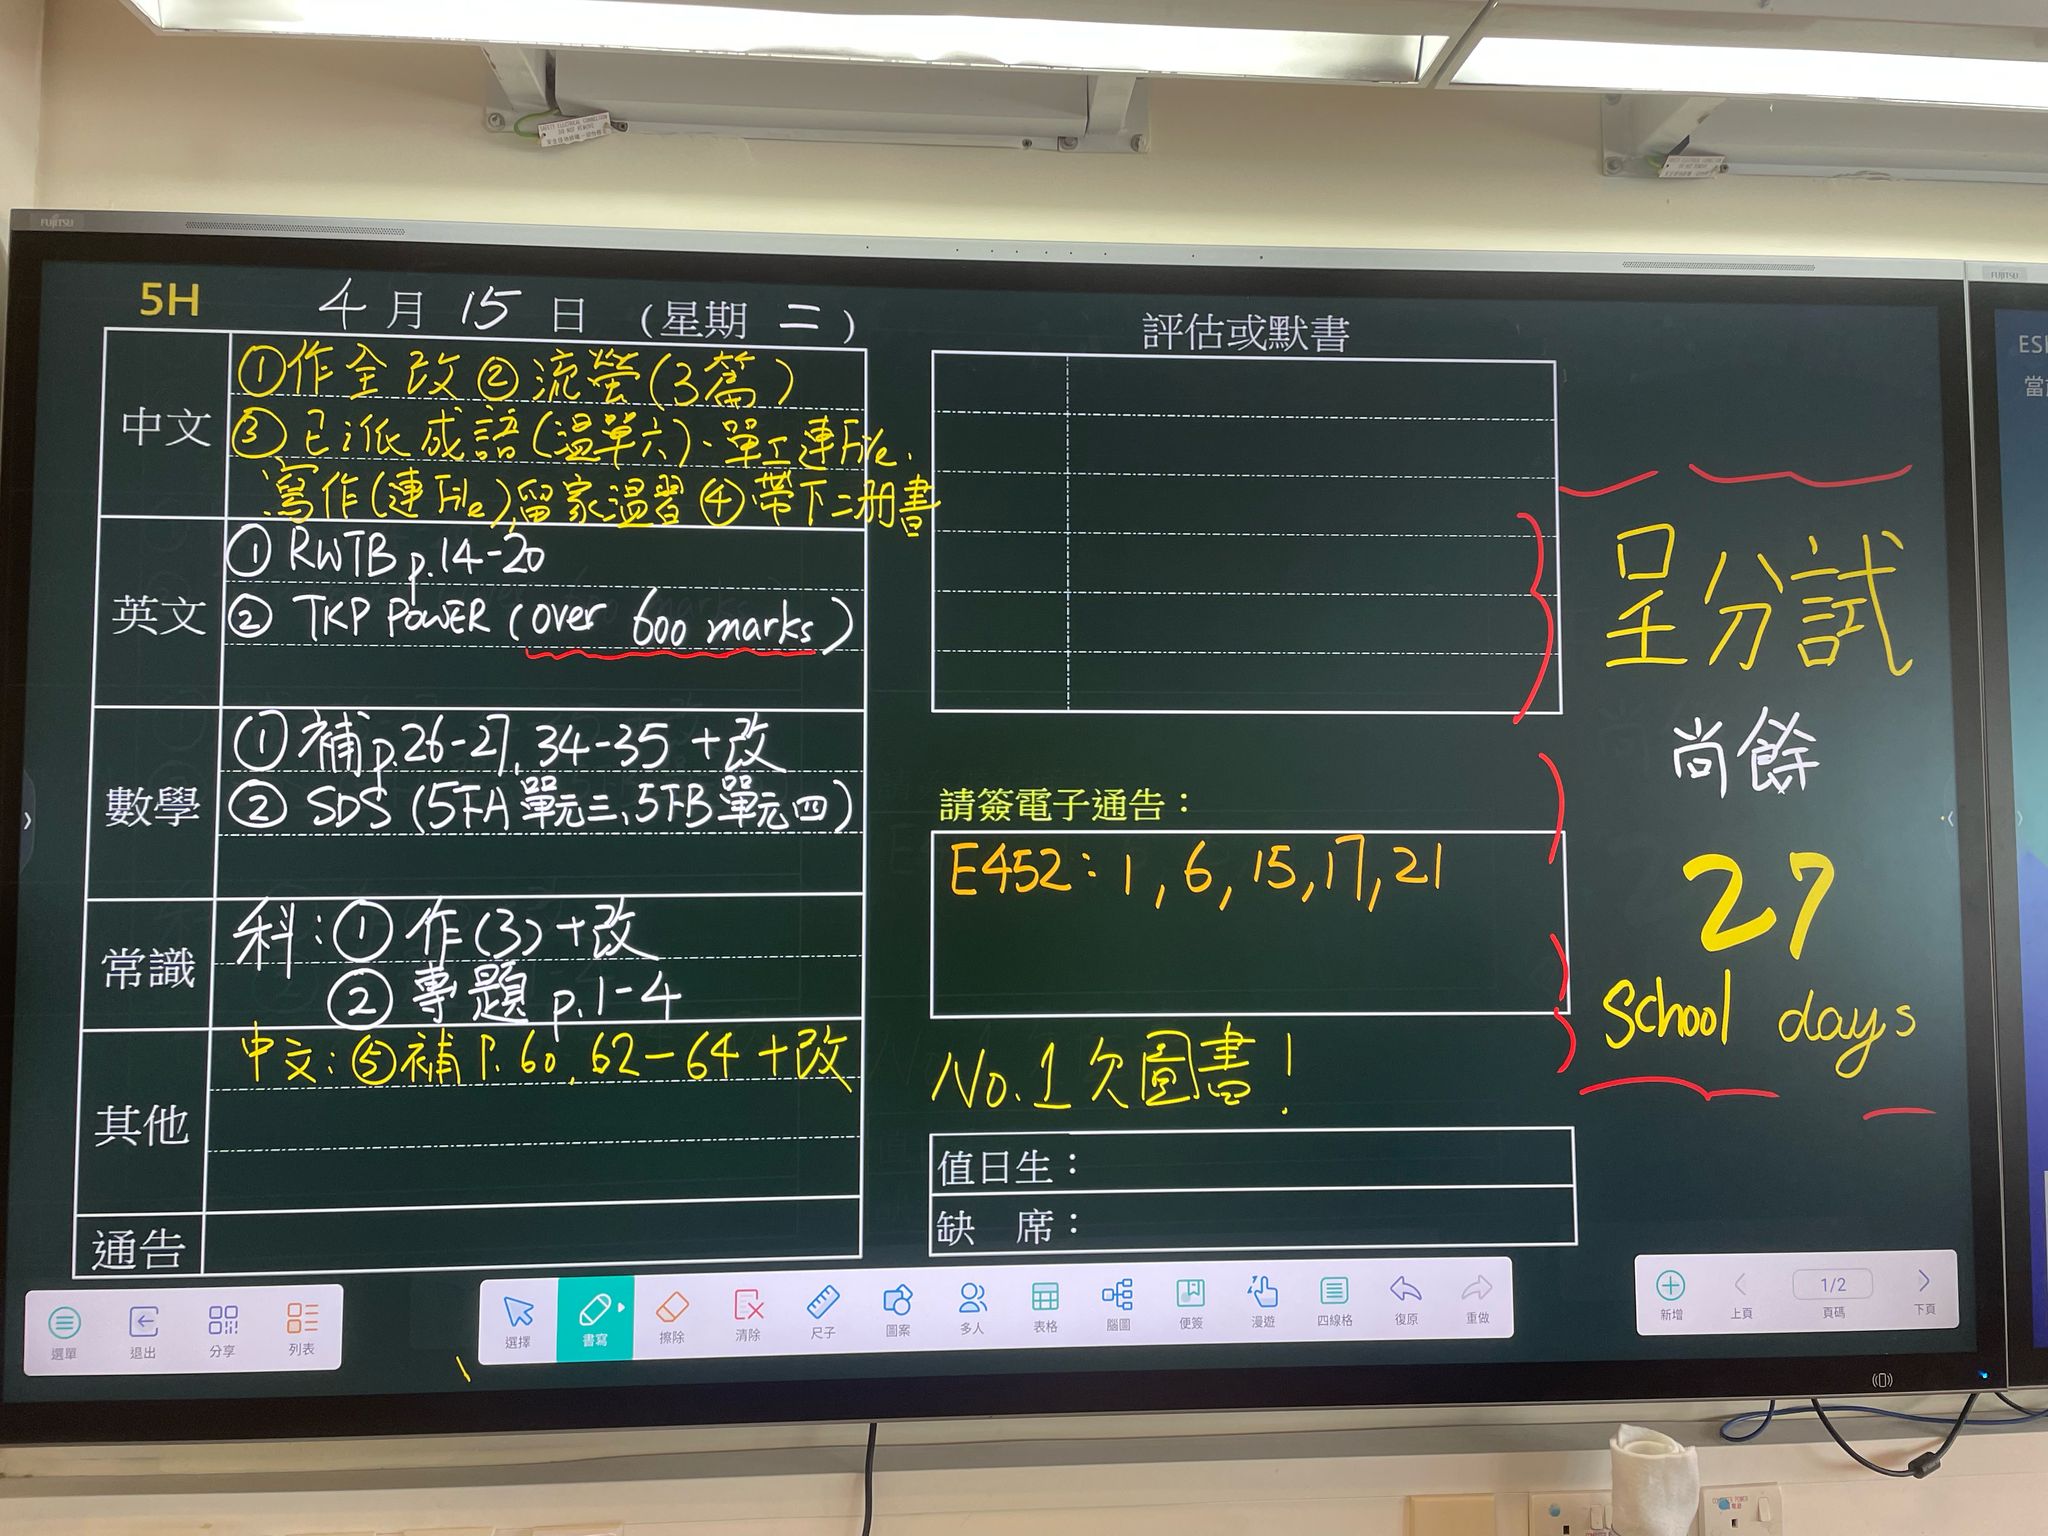 FUJITSU
FUJITSU
SAFETY ELECTRICAL CONNECTION
DO NOT REMOVE
5H
4月15日 (星期二)
中文
①作全改 ②流螢(3篇)
③已派成語(溫單六)、單工連File、
寫作(連File)留家溫習 ④帶下二冊書
英文
① RWTB p.14-20
② TKP POWER (over 600 marks)
數學
① 補p.26-27, 34-35 +改
② SDS (5下A單元三、5下B單元四)
常識
科:① 作(3)+改
② 專題 p.1-4
其他
中文:⑤補P.60, 62-64+改
通告
評估或默書
請簽電子通告:
E452: 1, 6, 15, 17, 21
No.1欠圖書!
值日生:
缺 席:
呈分試
尚餘
27
School days
選單
退出
分享
列表
選擇
書寫
擦除
清除
尺子
圖案
多人
表格
腦圖
便簽
漫遊
四線格
復原
重做
新增
上頁
1/2
頁碼
下頁